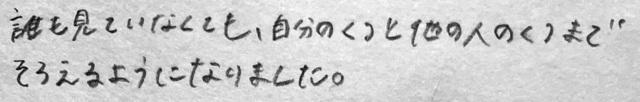 誰も見ていなくても、自分のくつと他の人のくつまで
そろえるようになりました。